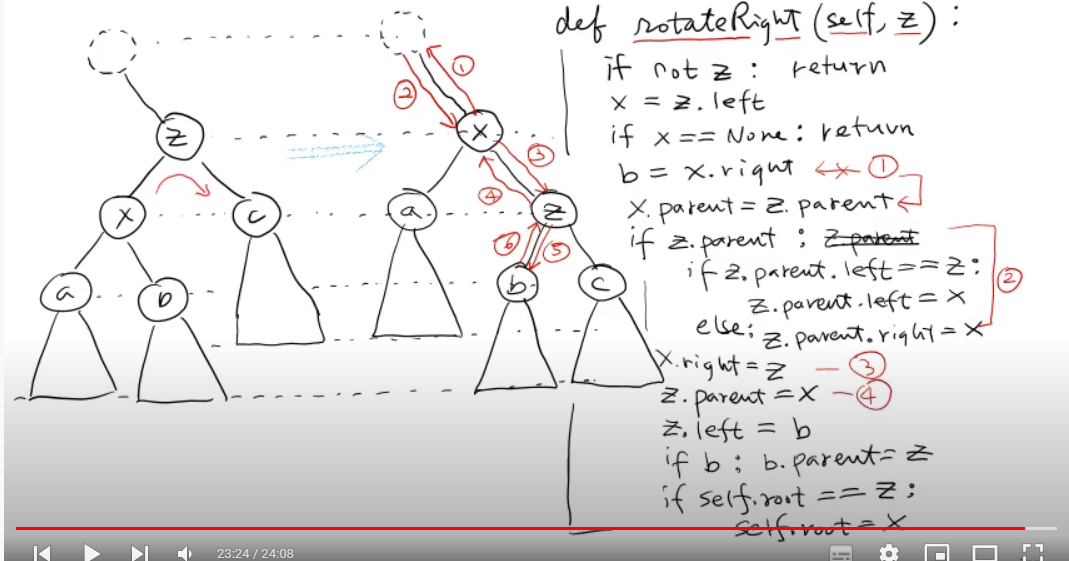 def rotateRight (self, z) :
if not z : return
x = z.left
if x == None : return
b = x.right ①
x.parent = z.parent
if z.parent : z.parent
if z.parent.left == z :
z.parent.left = x
②
else : z.parent.right = x
x.right = z - ③
z.parent = x - ④
z.left = b
if b : b.parent = z
if self.root == z :
self.root = x
①
②
z
x
③
④
x
c
a
z
⑥
⑤
a
b
b
c
23:24 / 24:08